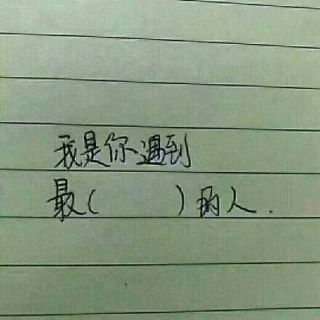 我是你遇到
最(     )的人.